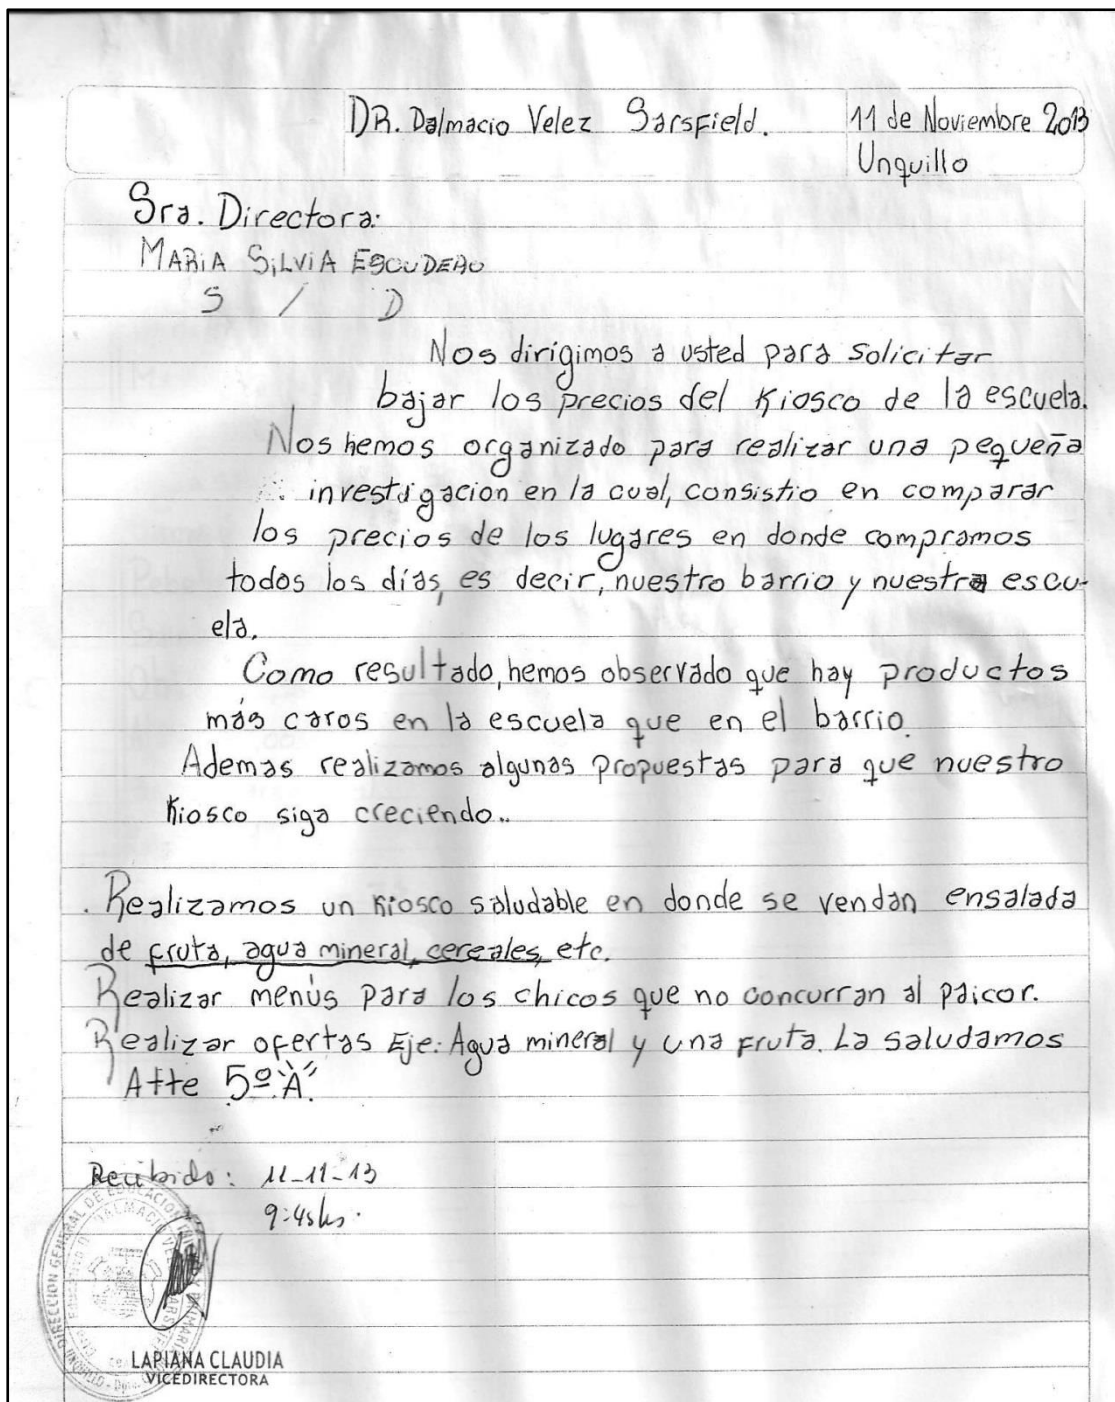 DR. Dalmacio Velez Sarsfield.
11 de Noviembre 2013
Unquillo
Sra. Directora:
MARiA SiLViA ESCUDERO
S / D
Nos dirigimos a usted para solicitar
bajar los precios del Kiosco de la escuela.
Nos hemos organizado para realizar una pequeña
investigacion en la cual, consistio en comparar
los precios de los lugares en donde compramos
todos los días, es decir, nuestro barrio y nuestra escu-
ela.
Como resultado, hemos observado que hay productos
más caros en la escuela que en el barrio.
Ademas realizamos algunas propuestas para que nuestro
Kiosco siga creciendo..
. Realizamos un Kiosco saludable en donde se vendan ensalada
de fruta, agua mineral, cereales, etc.
Realizar menús para los chicos que no concurran al paicor.
Realizar ofertas Eje: Agua mineral y una fruta. La saludamos
Atte 5º "A".
Recibido: 11-11-13
9:45hs.
DIRECCION GENERAL DE EDUCACION
DALMACIO VELEZ SARSFIELD
LAPIANA CLAUDIA
VICEDIRECTORA